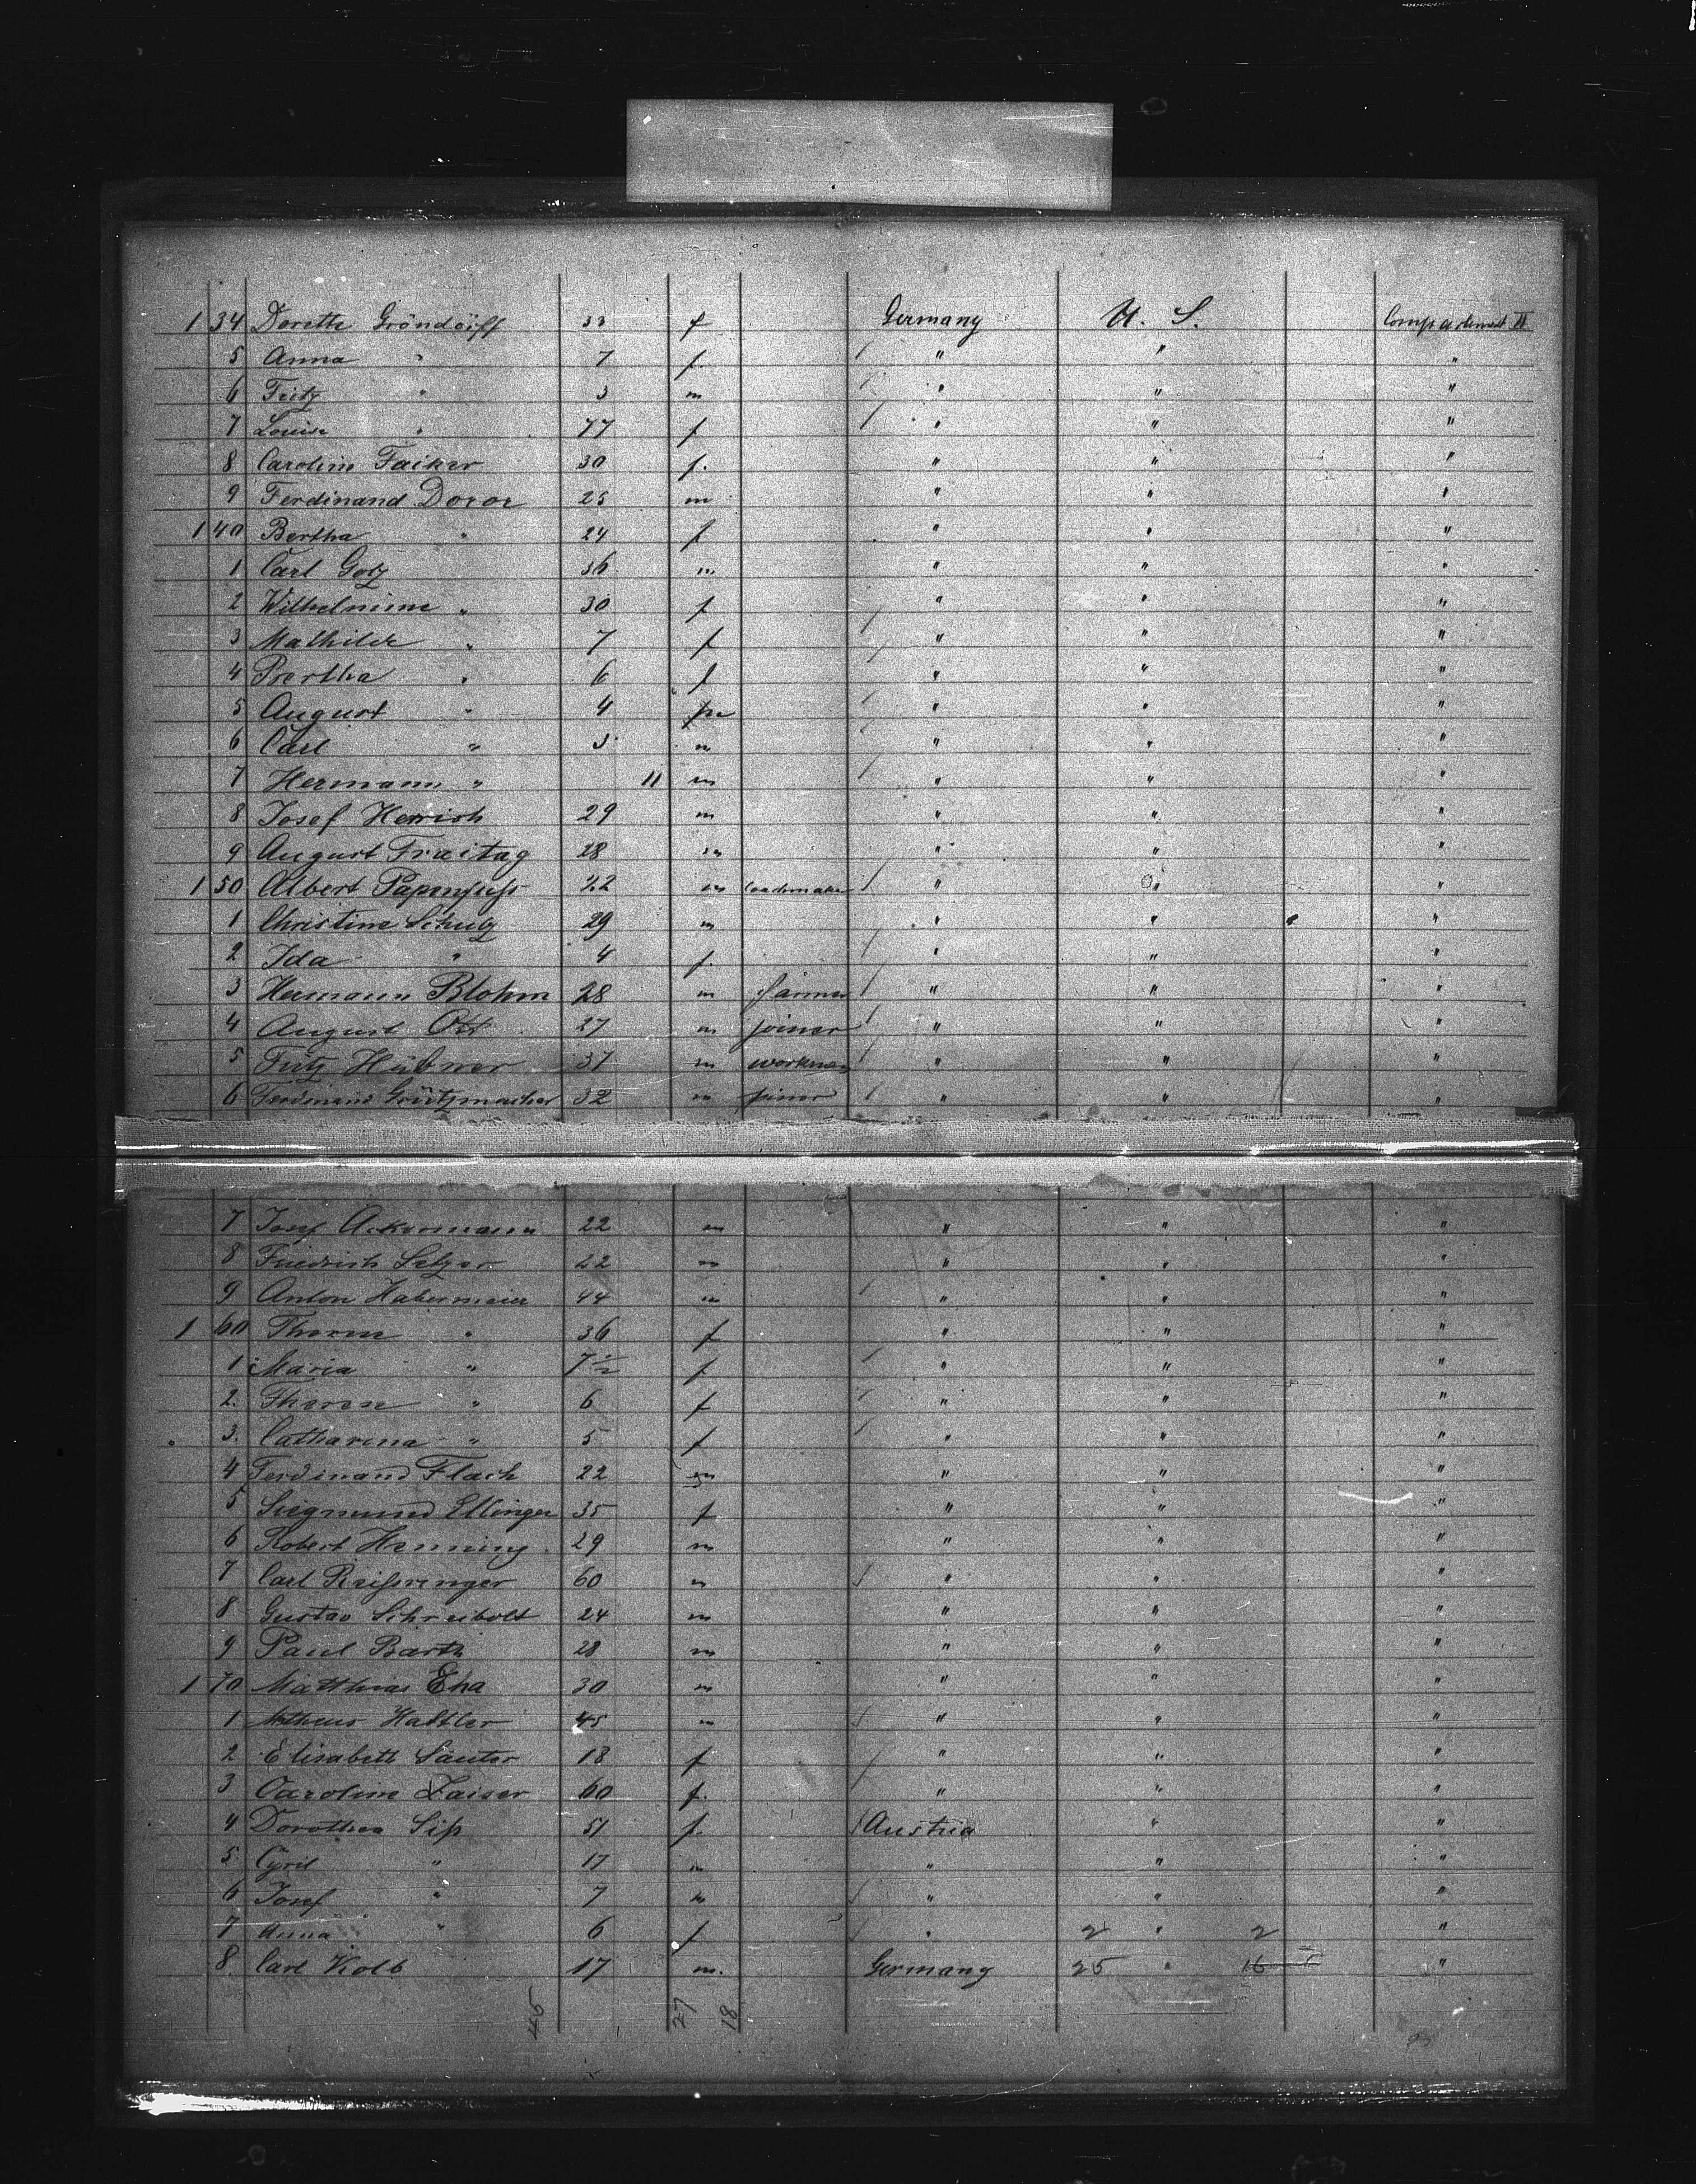 1 34 Dorette Gröndörff 33 f Germany U. S. Compartment II
5 Anna " 7 f. " " "
6 Fritz " 3 m " " "
7 Louise " 77 f " " "
8 Caroline Faiker 30 f. " " "
9 Ferdinand Doror 25 m " " "
1 40 Bertha " 24 f " " "
1 Carl Gotz 36 m " " "
2 Wilhelmine " 30 f " " "
3 Mathilde " 7 f " " "
4 Bertha " 6 f " " "
5 August " 4 m " " "
6 Carl " 3 m " " "
7 Hermann " 11 m " " "
8 Josef Herrich 29 m " " "
9 August Freitag 28 m " " "
1 50 Albert Papenfuss 22 m " " "
1 Christine Schulz 29 m " " "
2 Ida " 4 f. " " "
3 Hermann Blohm 28 m farmer " " "
4 August Ott 27 m joiner " " "
5 Fritz Hübner 37 m workman " " "
6 Ferdinand Grützmacher 32 m joiner " " "
7 Josef Ackermann 22 m " " "
8 Friedrich Selzer 22 m " " "
9 Anton Habermeier 44 m " " "
1 60 Therese " 36 f " " "
1 Maria " 7 1/2 f " " "
2. Therese " 6 f " " "
3. Catharina " 5 f " " "
4 Ferdinand Flach 22 m " " "
5 Siegmund Ellinger 35 f " " "
6 Robert Henning 29 m " " "
7 Carl 60 m " " "
8 Gustav Schreibolt 24 m " " "
9 Paul Barth 28 m " " "
1 70 Matthias Eha 30 m " " "
1 Matheus Hattler 45 m " " "
2 Elisabeth Sauter 18 f " " "
3 Caroline Zaiser 60 f. " " "
4 Dorothea Sip 51 f. Austria " "
5 Cyril " 17 m " " "
6 Josef " 7 m " " "
7 Anna " 6 f " 2 " 2 "
8 Carl Kolb 17 m. Germany 25 " 16 "
45 27 18